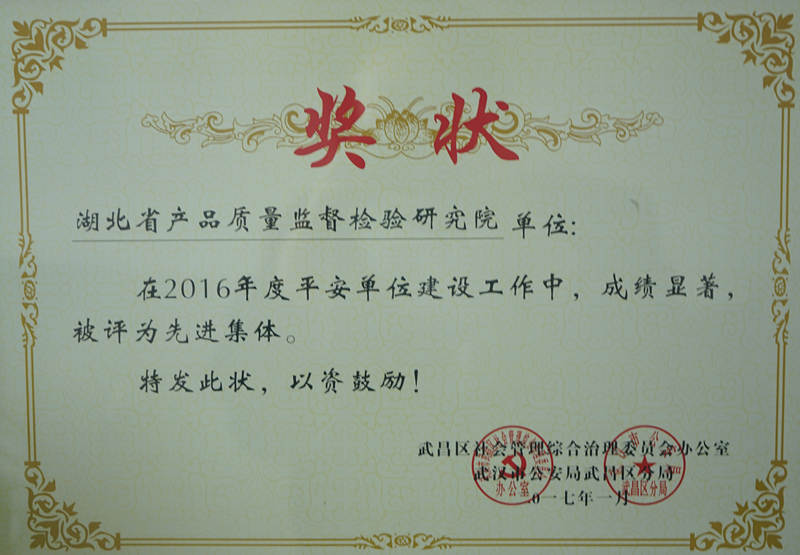 奖状
湖北省产品质量监督检验研究院 单位:
在2016年度平安单位建设工作中，成绩显著，
被评为先进集体。
特发此状，以资鼓励！
武昌区社会管理综合治理委员会办公室
武汉市公安局武昌区分局
二〇一七年一月
办公室
武昌区分局